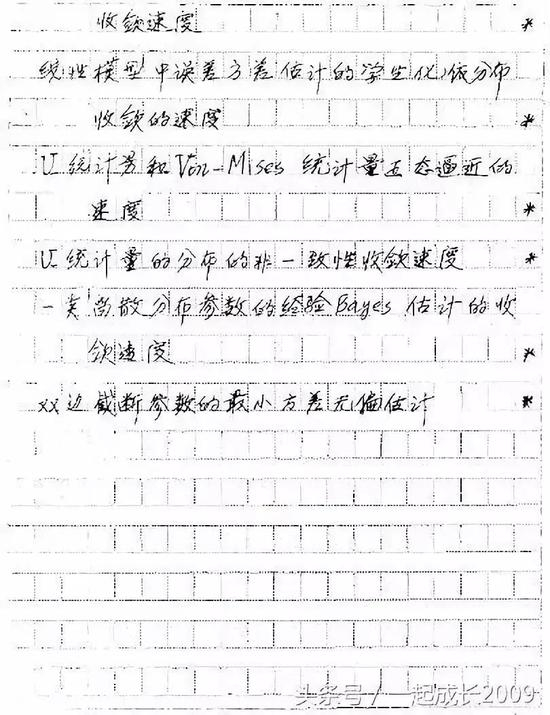 收敛速度 *
线性模型中误差方差估计的学生化依分布
收敛的速度 *
U 统计量和 Von-Mises 统计量正态逼近的
速度 *
U 统计量的分布的非一致性收敛速度
一类离散分布参数的经验 Bayes 估计的收
敛速度 *
双边截断参数的最小方差无偏估计 *
头条号 / 一起成长2009